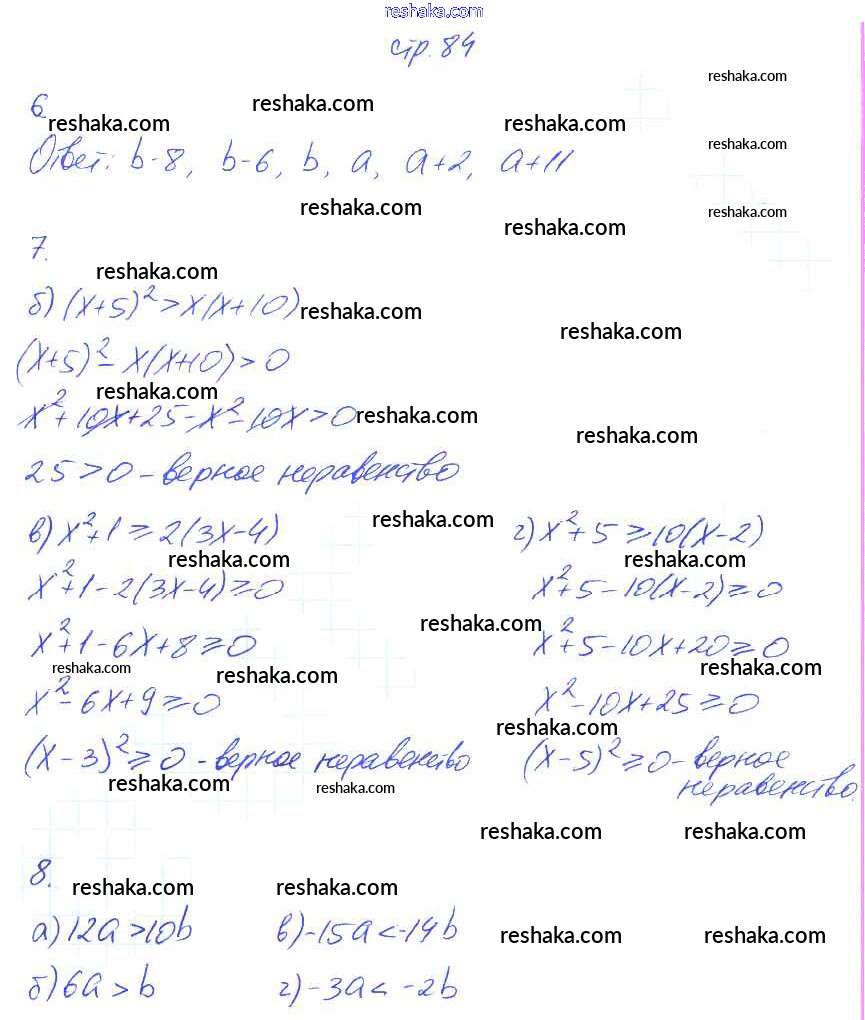 reshaka.com
стр. 84
reshaka.com
6
reshaka.com reshaka.com reshaka.com
Ответ: b-8, b-6, b, a, a+2, a+11
reshaka.com
reshaka.com reshaka.com reshaka.com
7.
reshaka.com
б) (x+5)² > x(x+10)
reshaka.com reshaka.com
(x+5)² - x(x+10) > 0
reshaka.com
x² + 10x + 25 - x² - 10x > 0
reshaka.com reshaka.com
25 > 0 - верное неравенство
reshaka.com
в) x²+1 ≥ 2(3x-4) г) x²+5 ≥ 10(x-2)
reshaka.com reshaka.com
x²+1-2(3x-4) ≥ 0 x²+5-10(x-2) ≥ 0
reshaka.com
x²+1-6x+8 ≥ 0 x²+5-10x+20 ≥ 0
reshaka.com reshaka.com reshaka.com
x²-6x+9 ≥ 0 x²-10x+25 ≥ 0
reshaka.com
(x-3)² ≥ 0 - верное неравенство (x-5)² ≥ 0 - верное
неравенство.
reshaka.com reshaka.com
reshaka.com reshaka.com
8.
reshaka.com reshaka.com
а) 12a > 10b в) -15a < -14b
reshaka.com reshaka.com
б) 6a > b г) -3a < -2b